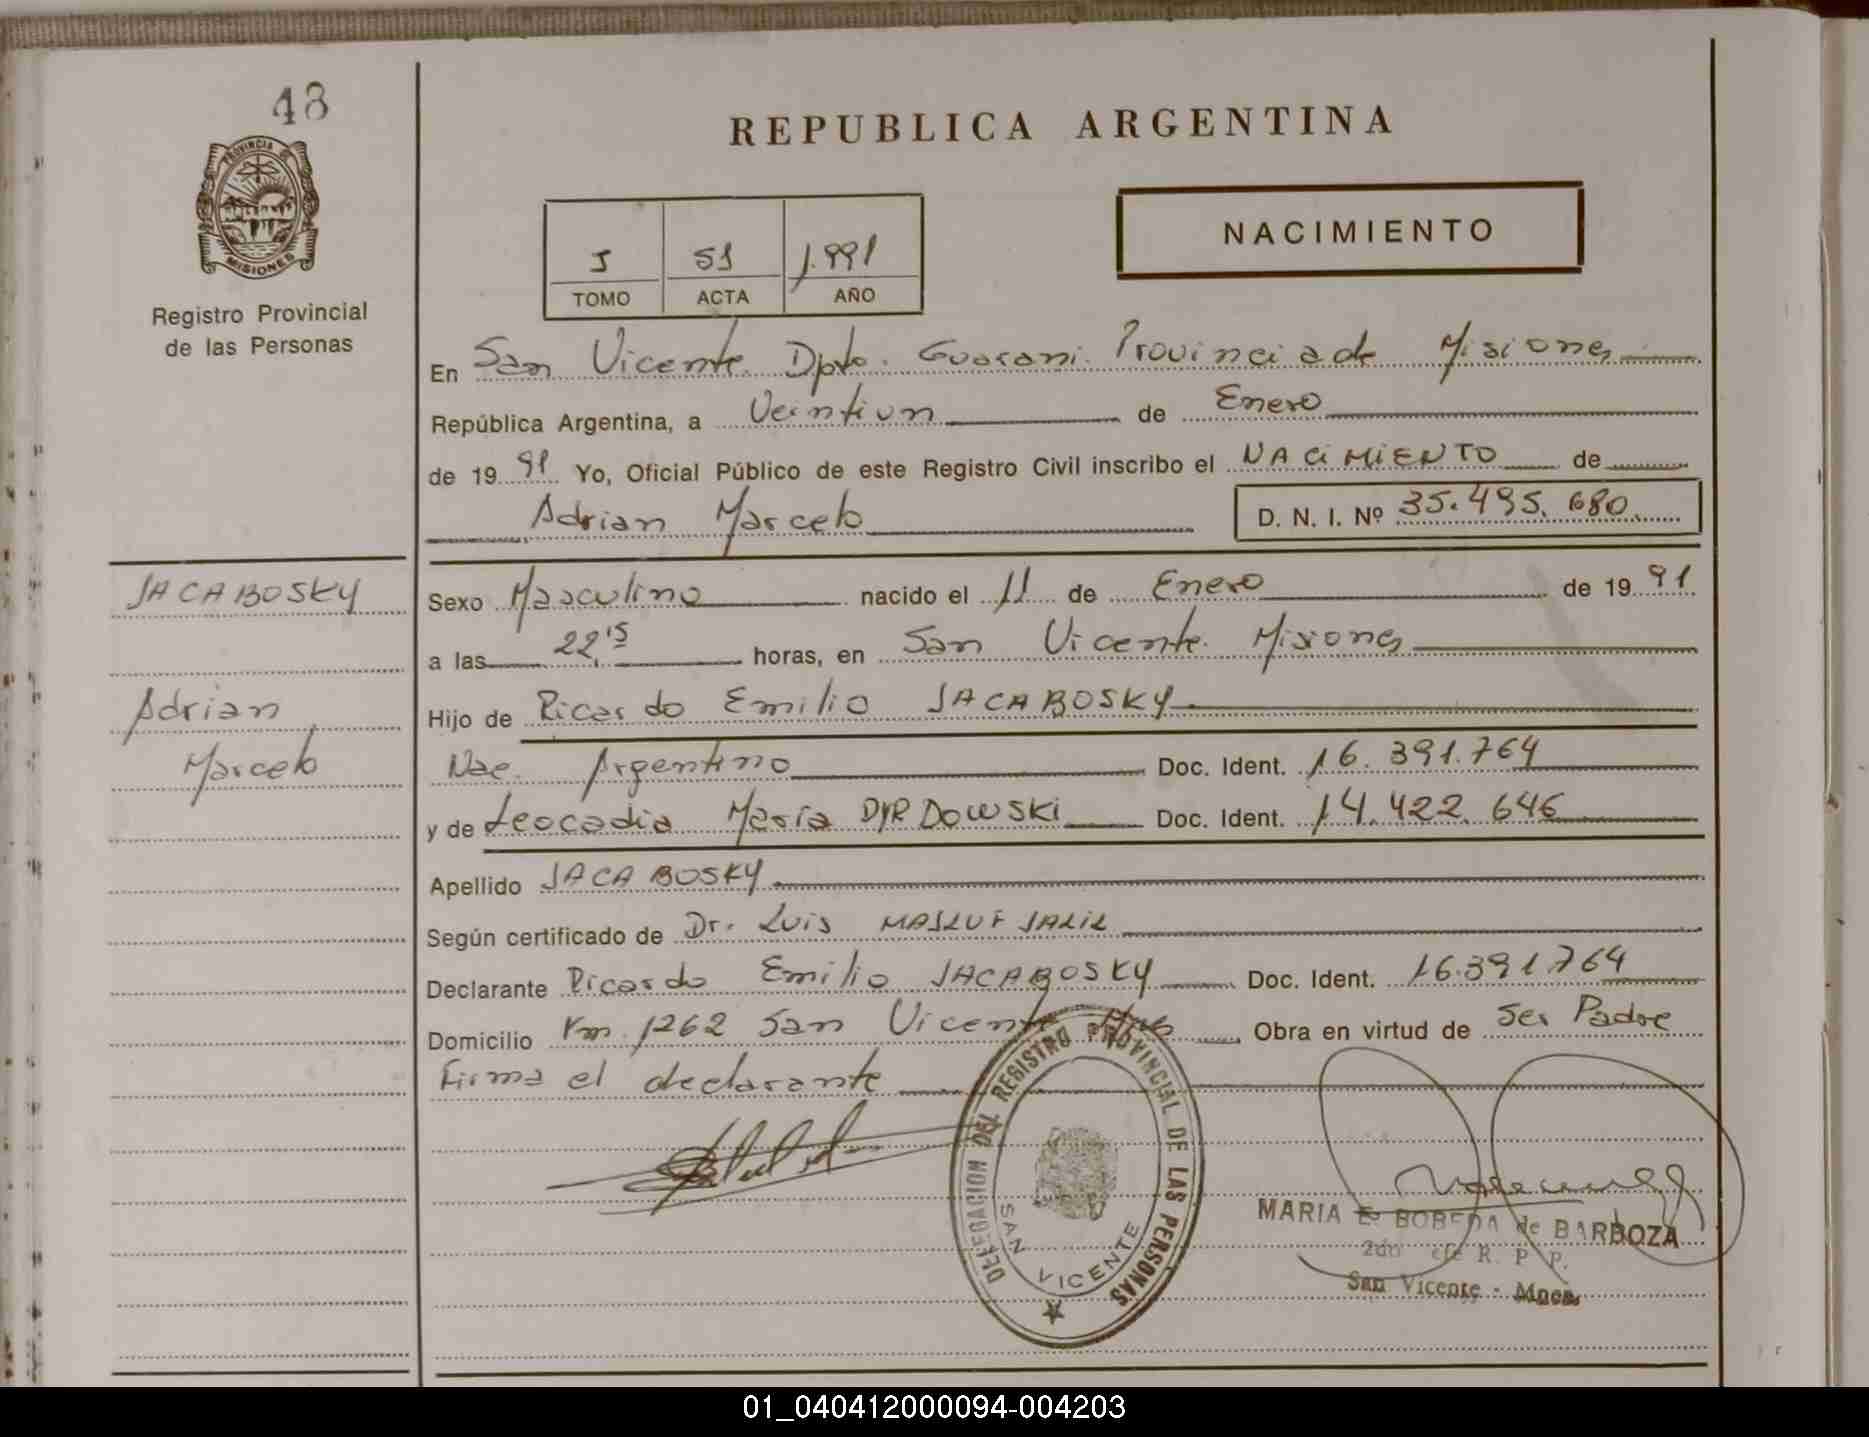 48
PROVINCIA DE
MISIONES
Registro Provincial
de las Personas
REPUBLICA ARGENTINA
NACIMIENTO
J 51 1.991
TOMO ACTA AÑO
En San Vicente Dpto. Guarani. Provincia de Misiones
República Argentina, a Veintiun de Enero
de 19 91 Yo, Oficial Público de este Registro Civil inscribo el NACiMiENTO de
Adrian Marcelo D. N. I. Nº 35.495.680
JACABOSKY
Adrian
Marcelo
Sexo Masculino nacido el 11 de Enero de 19 91
a las 22,15 horas, en San Vicente. Misiones
Hijo de Ricardo Emilio JACABOSKY
Nac. Argentino Doc. Ident. 16.391.764
y de Leocadia María DYRDOWSKi Doc. Ident. 14.422.646
Apellido JACABOSKY
Según certificado de Dr. Luis MASLUF JALIL
Declarante Ricardo Emilio JACABOSKY Doc. Ident. 16.391.764
Domicilio Km. 1262 San Vicente Mnes Obra en virtud de Ser Padre
Firma el declarante
DELEGACION DEL REGISTRO PROVINCIAL DE LAS PERSONAS
SAN VICENTE
MARIA E. BOBEDA de BARBOZA
2do efe R. P. P.
San Vicente - Mnes.
01_040412000094-004203